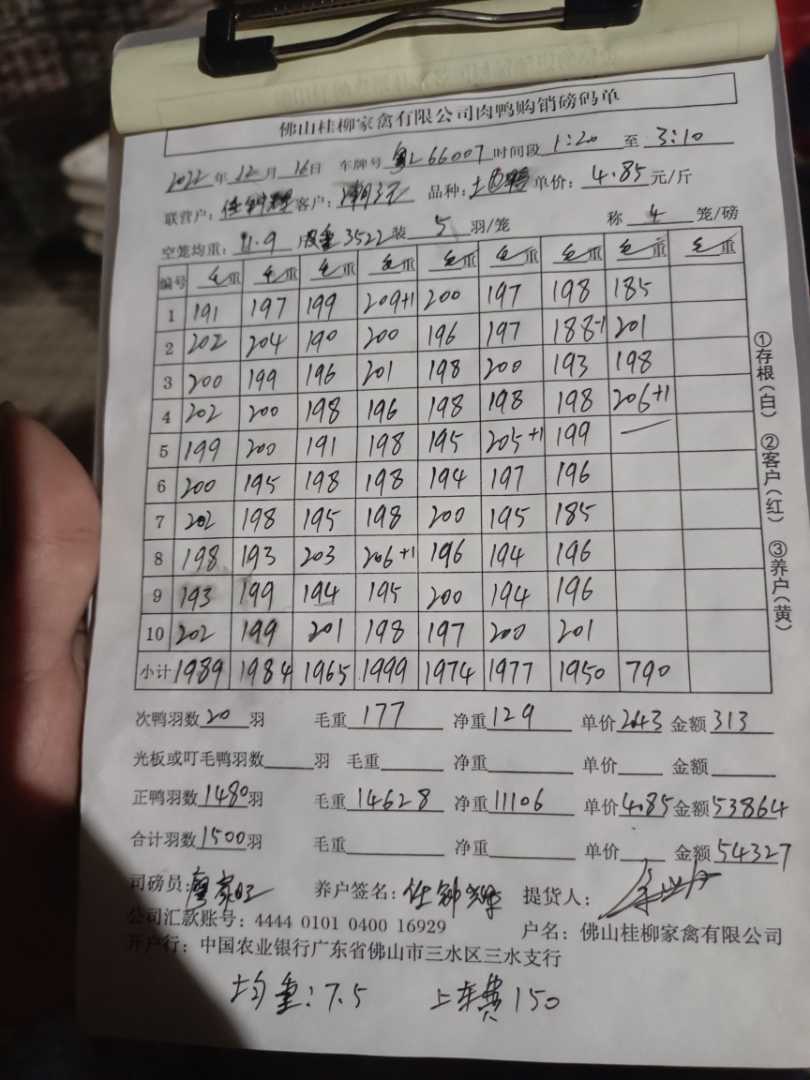 佛山桂柳家禽有限公司肉鸭购销磅码单
2022年12月16日 车牌号 粤L66007 时间段 1:20 至 3:10
联营户: 任钟辉 客户: 品种: 土 单价: 4.85元/斤
空笼均重: 11.9 3522 装 5 羽/笼 称 4 笼/磅
编号 毛重 毛重 毛重 毛重 毛重 毛重 毛重 毛重 毛重
1 191 197 199 209+1 200 197 198 185
2 202 204 190 200 196 197 188-1 201
3 200 199 196 201 198 200 193 198
4 202 200 198 196 198 198 198 206+1
5 199 200 191 198 195 205+1 199 —
6 200 195 198 198 194 197 196
7 202 198 195 198 200 195 185
8 198 193 203 206+1 196 194 196
9 193 199 194 195 200 194 196
10 202 199 201 198 197 200 201
小计 1989 1984 1965 1999 1974 1977 1950 790
次鸭羽数 20 羽 毛重 177 净重 129 单价 2.43 金额 313
光板或叮毛鸭羽数 羽 毛重 净重 单价 金额
正鸭羽数 1480 羽 毛重 14628 净重 11106 单价 4.85 金额 53864
合计羽数 1500 羽 毛重 净重 单价 金额 54327
司磅员: 廖家旺 养户签名: 任钟辉 提货人:
公司汇款账号: 4444 0101 0400 16929 户名: 佛山桂柳家禽有限公司
开户行: 中国农业银行广东省佛山市三水区三水支行
均重: 7.5 上车费 150
①存根(白) ②客户(红) ③养户(黄)